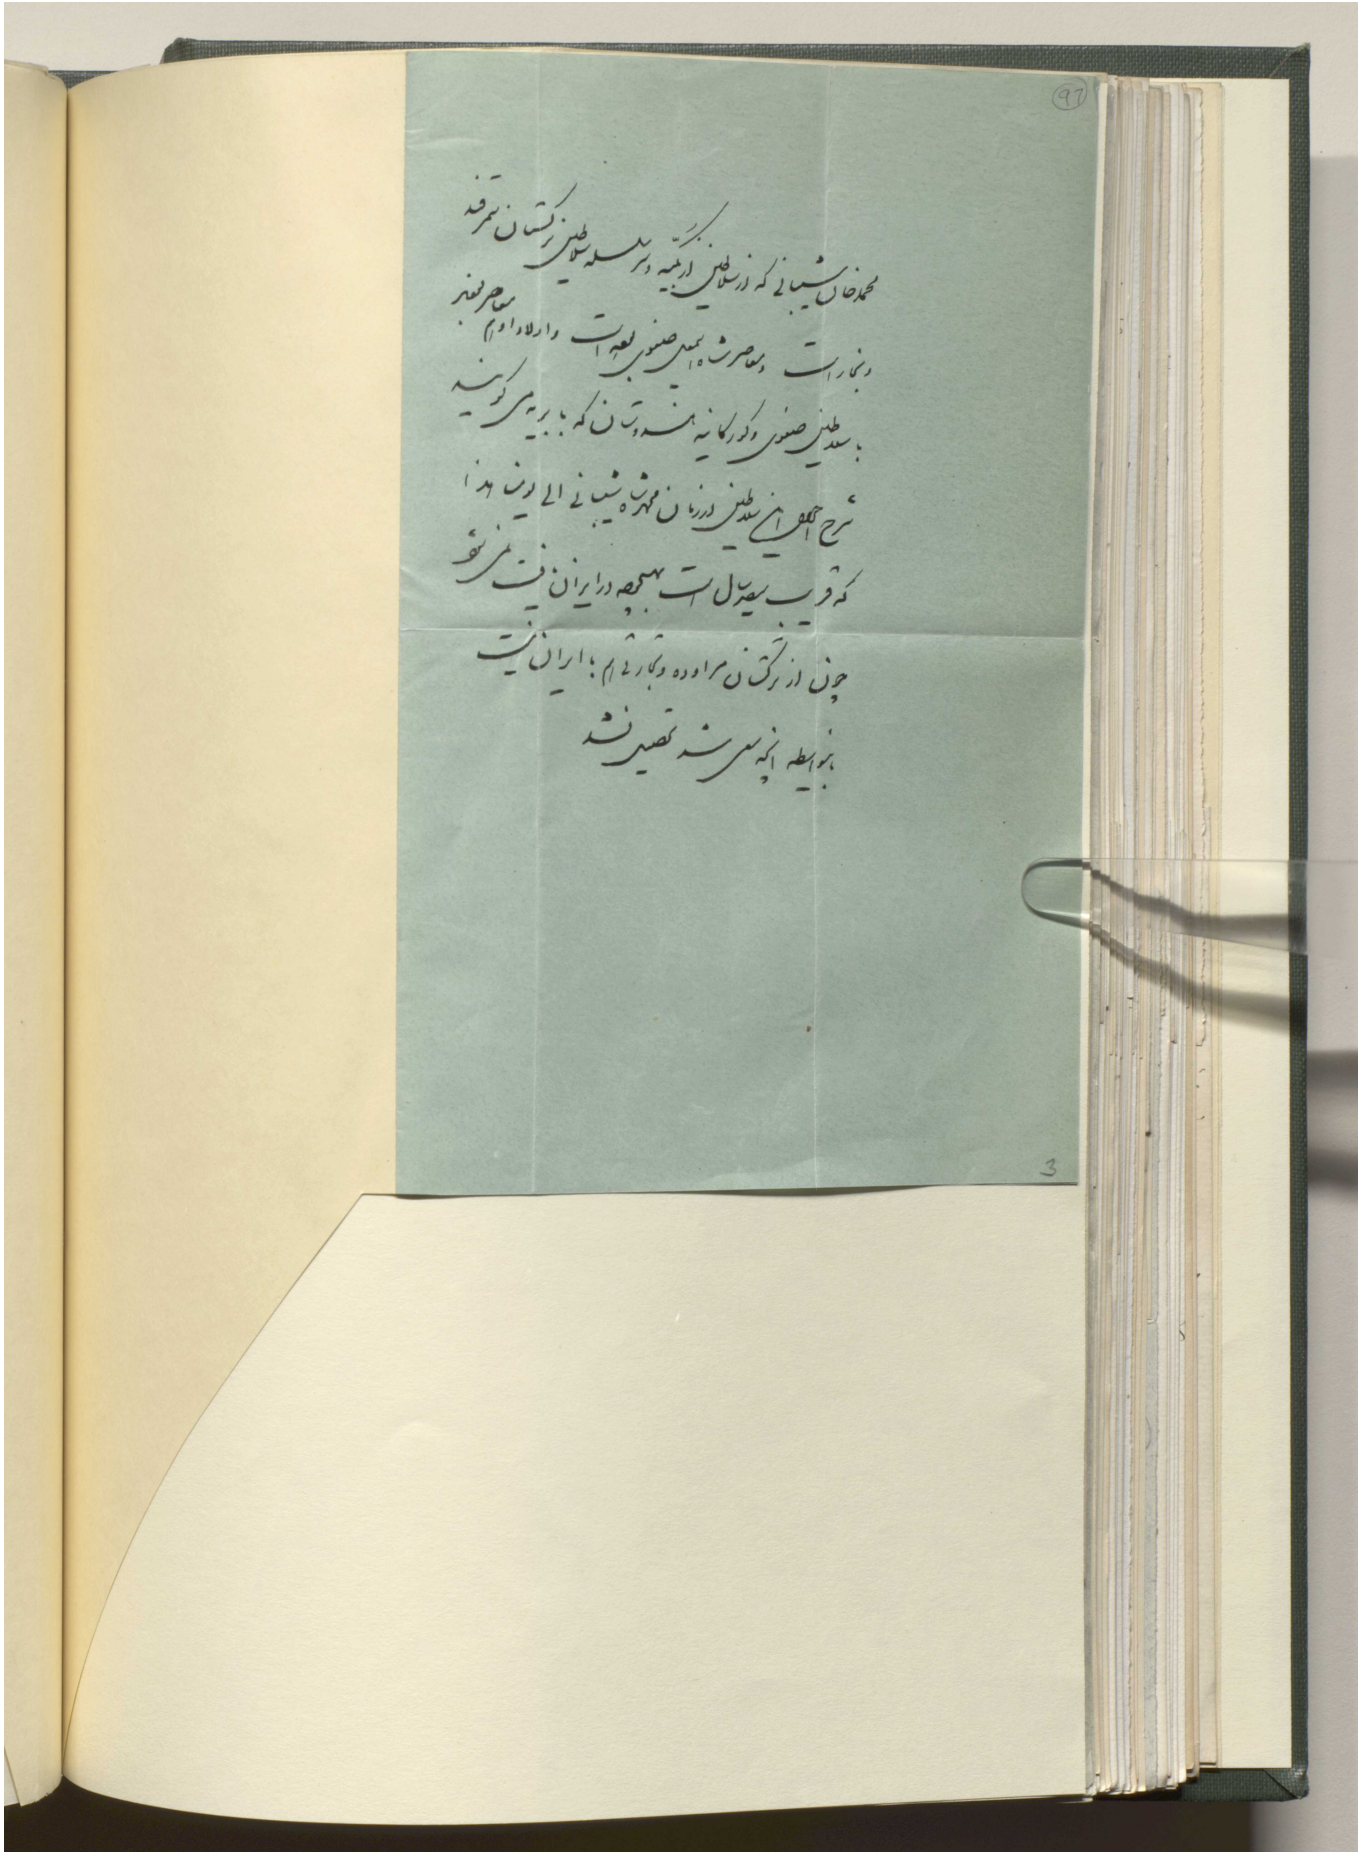 97
محمد خان شیبانی که از سلاطین ازبکیه و سر سلسله سلاطین ترکستان سمرقند
و بخارا است و معاصر شاه اسمعیل صفوی بوده است و اولاد او هم معاصر بودند
با سلاطین صفوی و کورکانیه هندوستان که بابریه می گویند
شرح احوال این سلاطین از زمان محمد شاه شیبانی الی یومنا هذا
که قریب سیصد سال است بهیچوجه در ایران یافت نمی شود
چون از ترکستان مراوده و تجارتی هم با ایران نیست
باینواسطه آنچه سعی شد تحصیل نشد
3